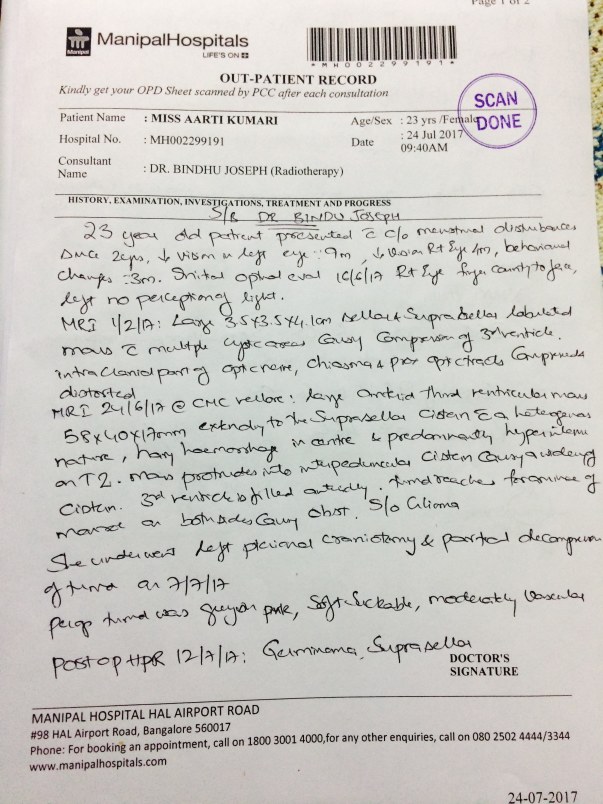 Page 1 of 2
Manipal
ManipalHospitals
LIFE'S ON
*MH002299191*
OUT-PATIENT RECORD
Kindly get your OPD Sheet scanned by PCC after each consultation
SCAN DONE
Patient Name : MISS AARTI KUMARI Age/Sex : 23 yrs /Female
Hospital No. : MH002299191 Date : 24 Jul 2017
09:40AM
Consultant
Name : DR. BINDHU JOSEPH (Radiotherapy)
HISTORY, EXAMINATION, INVESTIGATIONS, TREATMENT AND PROGRESS
S/B DR BINDU JOSEPH
23 year old patient presented c c/o menstrual disturbances
since 2yrs, ↓ vision in left eye : 9m, ↓ vision Rt Eye 4m, behavioural
changes : 3m. Initial ophal eval 16/6/17 Rt Eye finger counting to face,
left no perception of light.
MRI 1/2/17: Large 3.5x3.5x4.1cm sellar & suprasellar lobulated
mass c multiple cystic areas causing compression of 3rd ventricle.
intracranial part of optic nerve, chiasma & prox optic tracts compressed
distorted
MRI 24/6/17 @ CMC vellore: large anterior third ventricular mass
58x40x17mm extending to the suprasellar cistern c a heterogenous
nature, having haemorrhage in centre & predominantly hyperintense
on T2. Mass protrudes into interpeduncular cistern causing widening
cistern. 3rd ventricle is filled anteriorly. tumor reaches foramina of
monro on both sides causing obst. S/o Glioma
She underwent left pterional craniotomy & partial decompression
of tumor on 7/7/17
perop tumor was greyish pink, soft suckable, moderately vascular
Post op HPR 12/7/17: Germinoma, Suprasellar
DOCTOR'S
SIGNATURE
MANIPAL HOSPITAL HAL AIRPORT ROAD
#98 HAL Airport Road, Bangalore 560017
Phone: For booking an appointment, call on 1800 3001 4000,for any other enquiries, call on 080 2502 4444/3344
www.manipalhospitals.com
24-07-2017